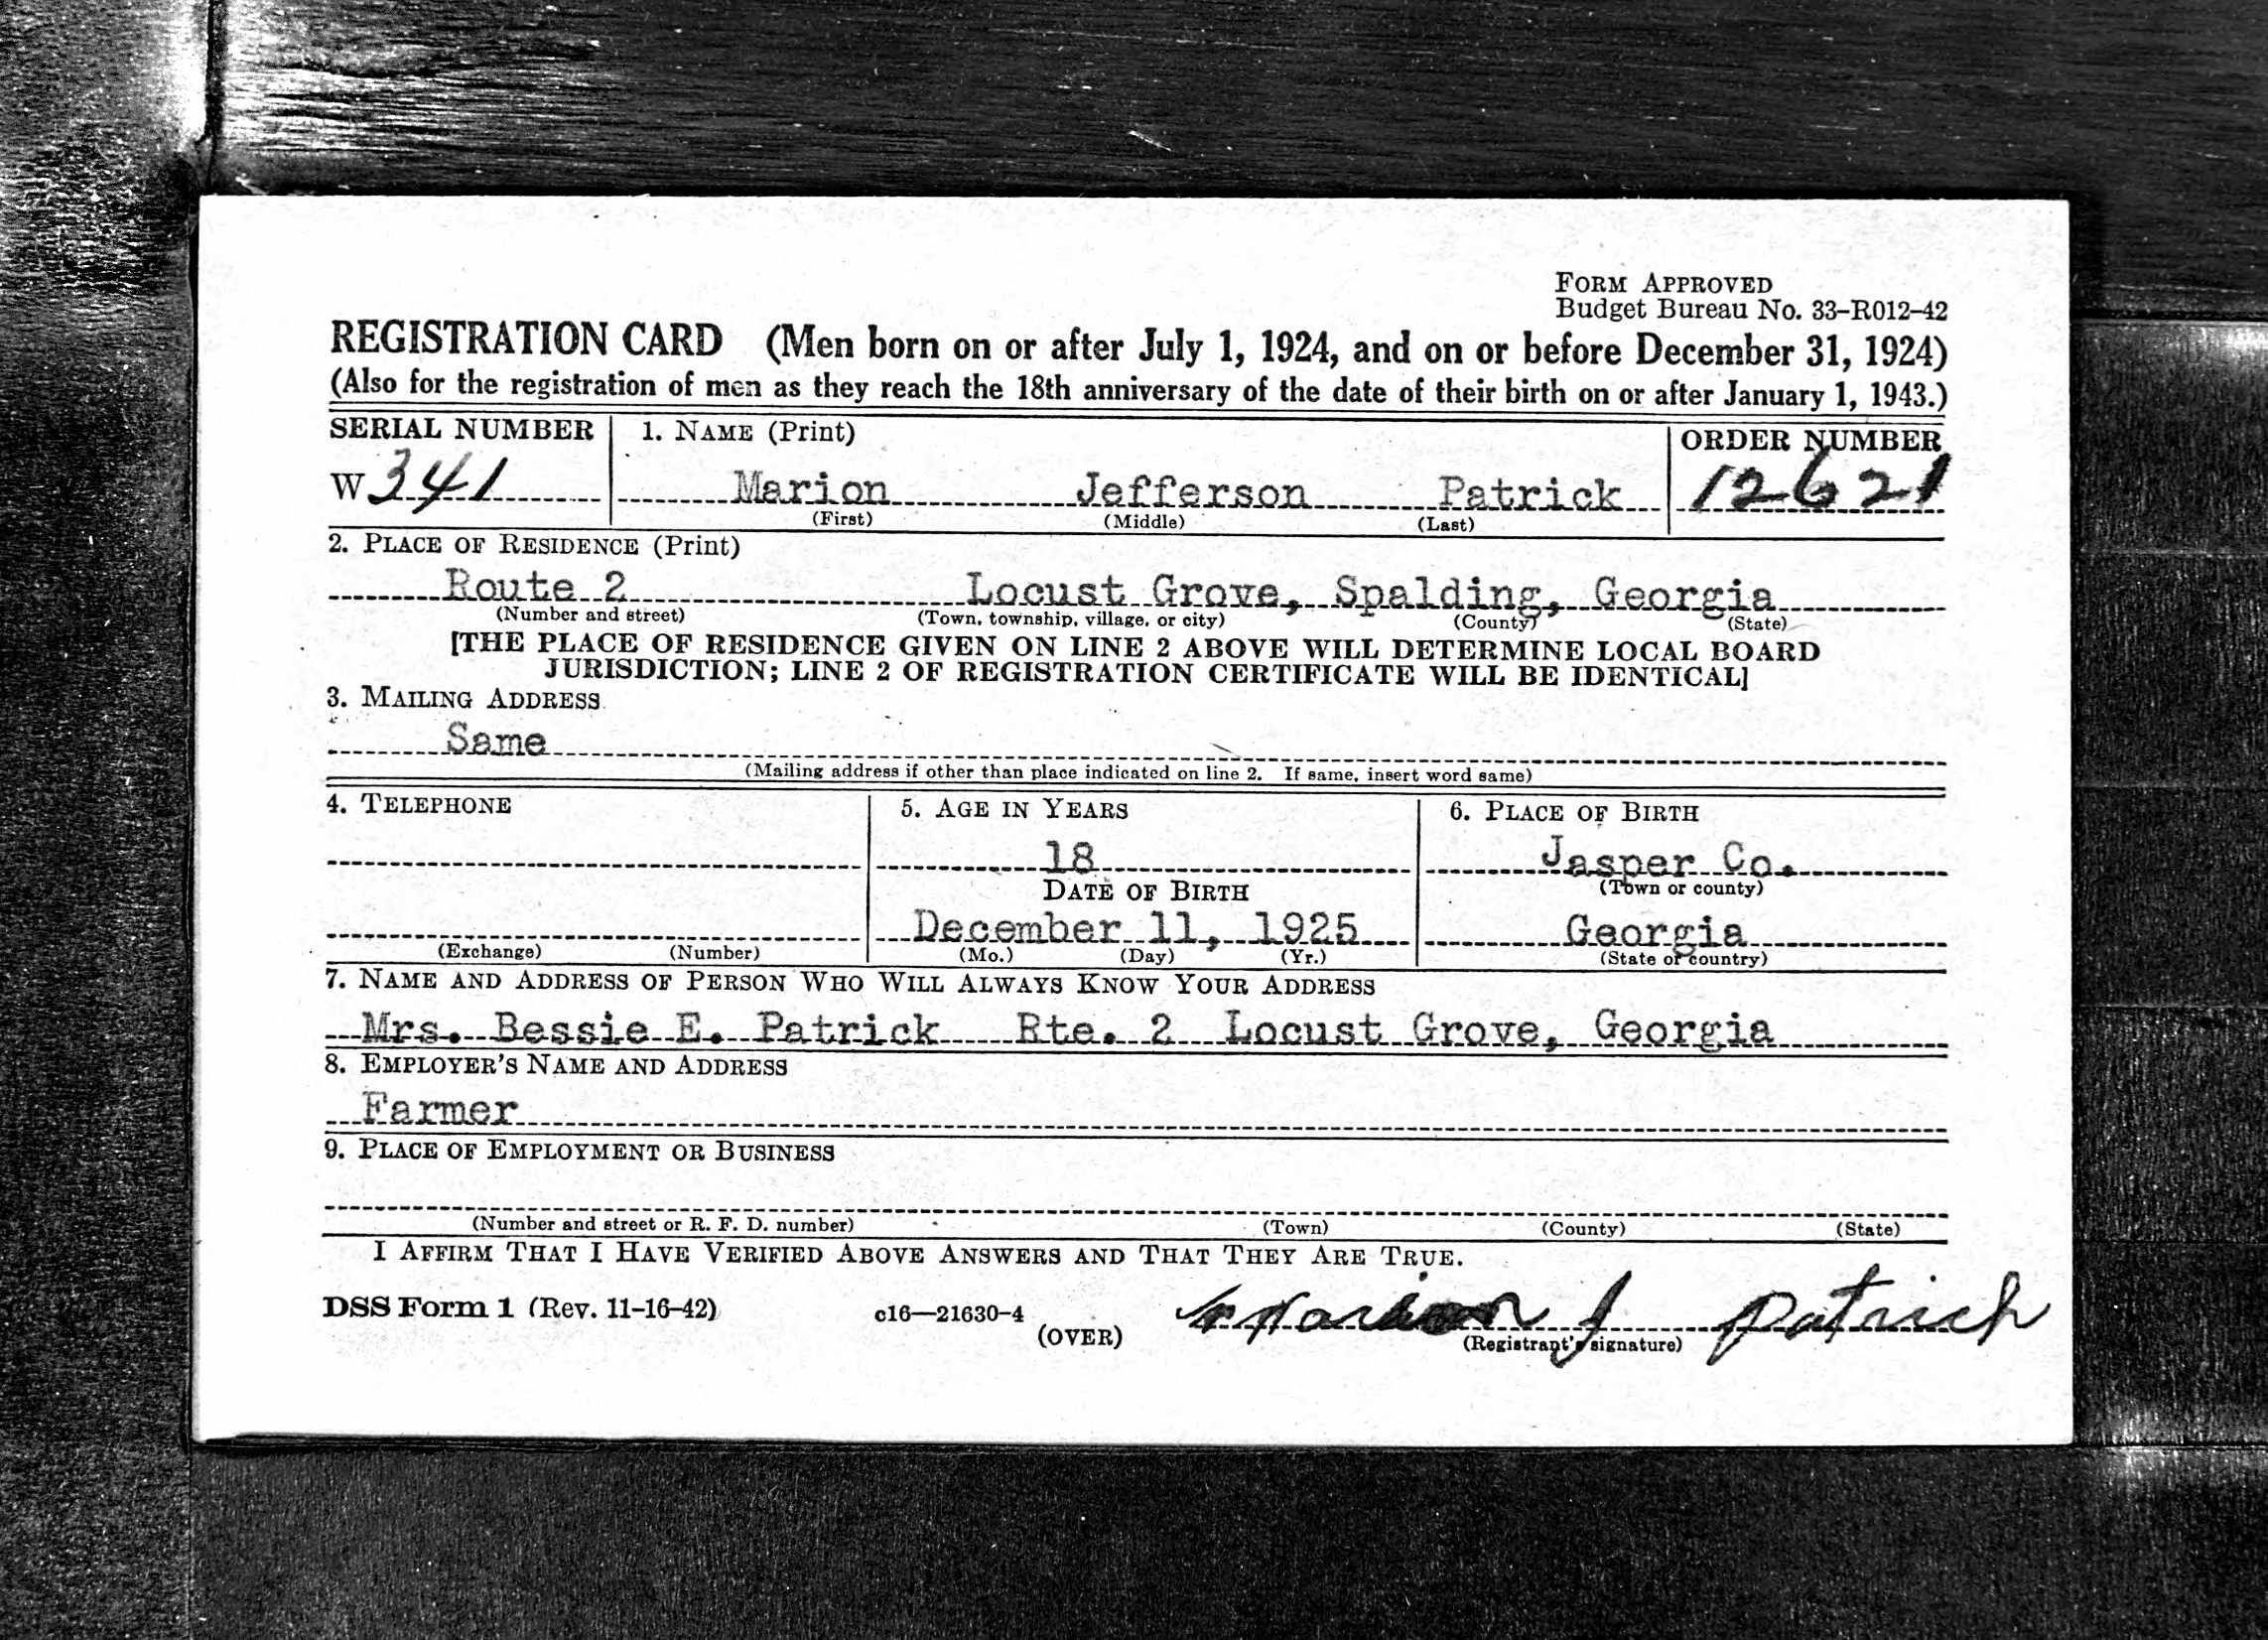 FORM APPROVED
Budget Bureau No. 33–R012–42
REGISTRATION CARD (Men born on or after July 1, 1924, and on or before December 31, 1924)
(Also for the registration of men as they reach the 18th anniversary of the date of their birth on or after January 1, 1943.)
SERIAL NUMBER 1. NAME (Print) ORDER NUMBER
W 341 Marion Jefferson Patrick 12621
(First) (Middle) (Last)
2. PLACE OF RESIDENCE (Print)
Route 2 Locust Grove, Spalding, Georgia
(Number and street) (Town, township, village, or city) (County) (State)
[THE PLACE OF RESIDENCE GIVEN ON LINE 2 ABOVE WILL DETERMINE LOCAL BOARD
JURISDICTION; LINE 2 OF REGISTRATION CERTIFICATE WILL BE IDENTICAL]
3. MAILING ADDRESS
Same
(Mailing address if other than place indicated on line 2. If same, insert word same)
4. TELEPHONE 5. AGE IN YEARS 6. PLACE OF BIRTH
18 Jasper Co.
DATE OF BIRTH (Town or county)
December 11, 1925 Georgia
(Exchange) (Number) (Mo.) (Day) (Yr.) (State or country)
7. NAME AND ADDRESS OF PERSON WHO WILL ALWAYS KNOW YOUR ADDRESS
Mrs. Bessie E. Patrick Rte. 2 Locust Grove, Georgia
8. EMPLOYER'S NAME AND ADDRESS
Farmer
9. PLACE OF EMPLOYMENT OR BUSINESS
(Number and street or R. F. D. number) (Town) (County) (State)
I AFFIRM THAT I HAVE VERIFIED ABOVE ANSWERS AND THAT THEY ARE TRUE.
DSS Form 1 (Rev. 11–16–42) c16—21630-4 Marion J Patrick
(OVER) (Registrant's signature)